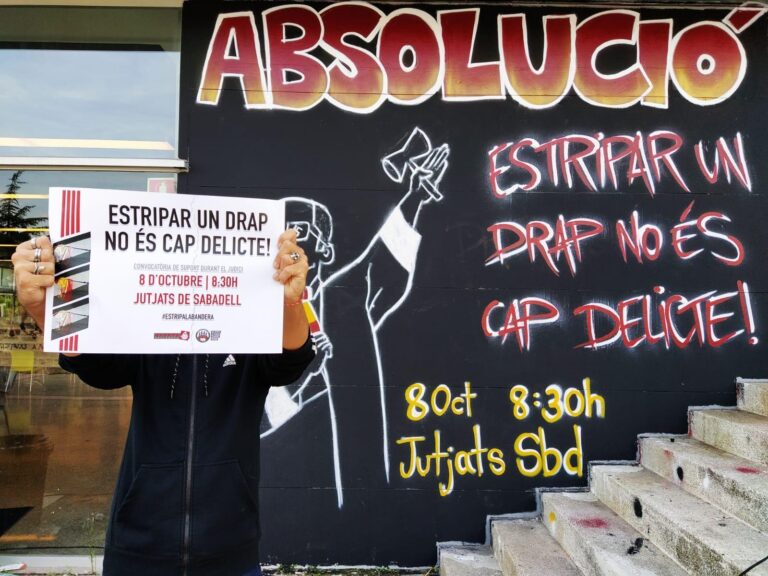 ABSOLUCIÓ
ESTRIPAR UN
DRAP NO ÉS
CAP DELICTE!
8 Oct 8:30h
Jutjats Sbd
ESTRIPAR UN DRAP
NO ÉS CAP DELICTE!
CONVOCATÒRIA DE SUPORT DURANT EL JUDICI
8 D'OCTUBRE | 8:30H
JUTJATS DE SABADELL
#ESTRIPALABANDERA